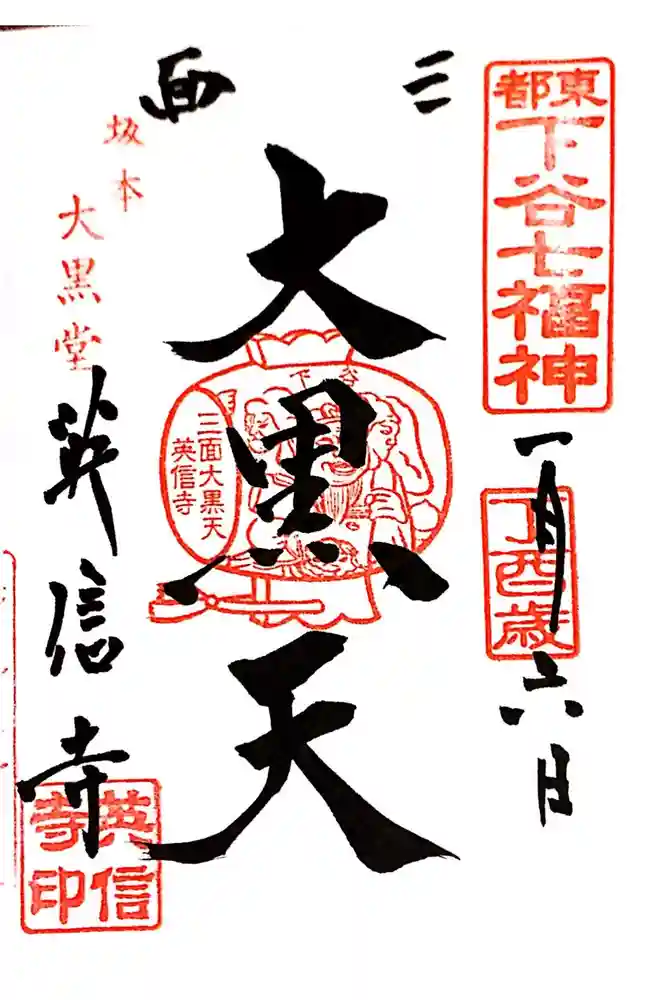 東都
下谷七福神
丁酉歳
一月六日
三面
大黒天
下谷
三面大黒天
英信寺
坂本
大黒堂
英信寺
英信
寺印